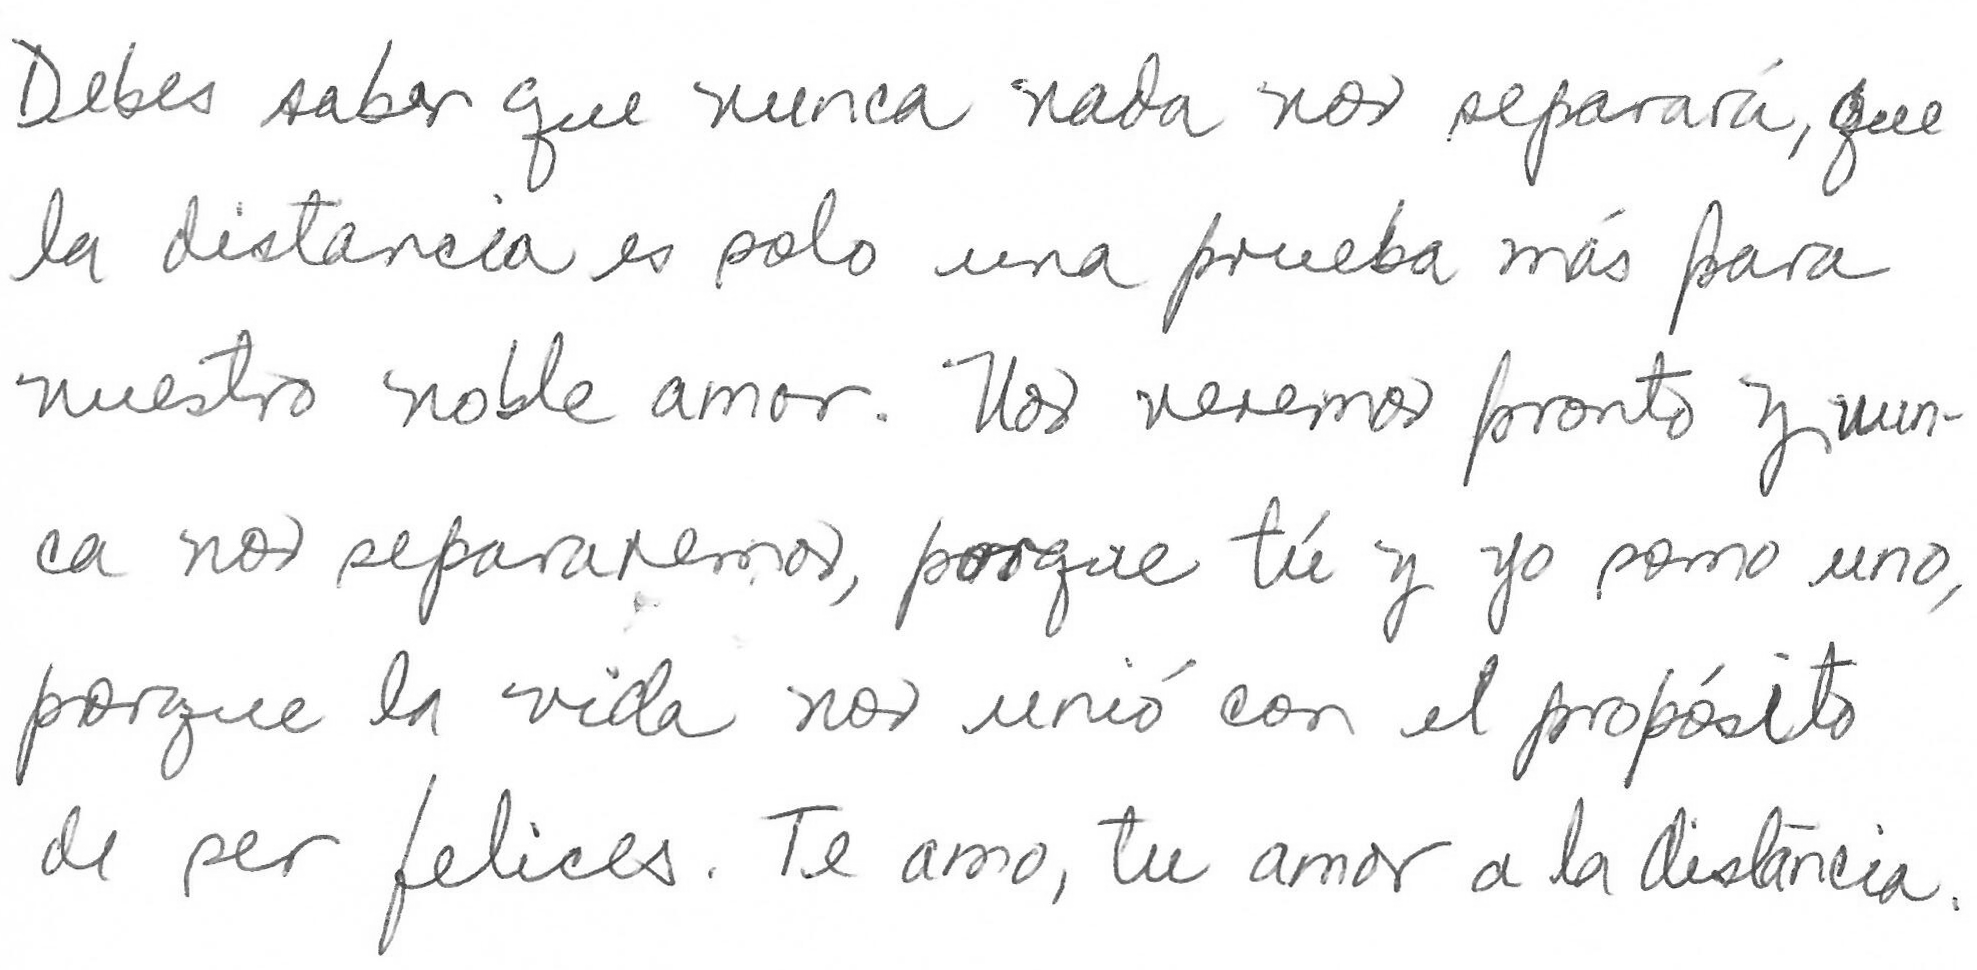 Debes saber que nunca nada nos separará, que
la distancia es solo una prueba más para
nuestro noble amor. Nos veremos pronto y nun-
ca nos separaremos, porque tú y yo somo uno,
porque la vida nos unió con el propósito
de ser felices. Te amo, tu amor a la distancia.